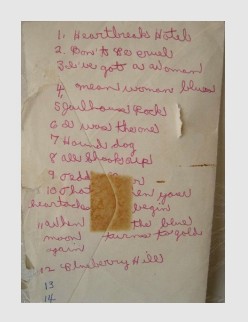 1. Heartbreak Hotel
2. Don't Be Cruel
3. I've got a woman
4. mean woman blues
5 Jailhouse Rock
6 I was the one
7 Hound dog
8 all shook up
9
10 when your
heartaches begin
11 when the blue
moon turns to gold
again
12 Blueberry Hill
13
14